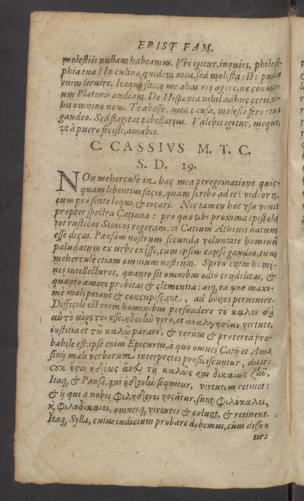 EPIST FAM.
molestiis nullam habeamus. Vbi igitur, inquies, philoso-
phia tua? In culina quidem mea, sed molesta est: pudet
enim seruire. Itaque facio me alias res agere, ne conuici-
um Platonis audiam. De Hispania nihil adhuc certi, ni-
hil omnino noui. Te abesse mea causa, moleste fero: tua
gaudeo. Sed flagitat tabellarius. Valebis igitur, meque,
vt à puero fecisti, amabis.
C. CASSIVS M. T. C.
S. D. 19.
NOn mehercule in hac mea peregrinatione quic-
quam libentius facio, quam scribo ad te: videor n.
cum præsente loqui, & iocari. Nec tamen hoc vsu venit
propter spectra Catiana: pro quo tibi proxima epistola
tot rusticos Stoicos regeram, vt Catium Athenis natum
esse dicas. Pansam nostrum secunda voluntate hominū
paludatum ex urbe exisse, cum ipsius causa gaudeo, tum
mehercule etiam omnium nostrum. Spero enim homi-
nes intellecturos, quanto sit omnibus odio crudelitas, &
quanto amori probitas & clementia: atq; ea quæ maxi-
me mali petant & concupiscant, ad bonos peruenire.
Difficile est enim hominibus persuadere τὸ καλὸν δι'
αὑτὸ αἱρετὸν esse; ἡδονὴν vero, & ἀταραξίαν virtute,
iustitia et τῷ καλῷ parari, & verum & pro
babile est: ipse enim Epicurus, à quo omnes Catij et Ama
finij mali verborum interpretes proficiscuntur, dicit:
οὐκ ἔστιν ἡδέως ἄνευ τῦ καλῶς καὶ δικαίως ζῆν.
Itaq; & Pansa, qui ἡδονὴν sequitur, virtutem retinet:
& ij qui a vobis φιλήδονοι vocātur, sunt φιλόκαλοι,
κ φιλοδίκαιοι, omnesq; virtutes & colunt, & retinent.
Itaq; Sylla, cuius iudicium probare debemus, cum dissen-
tire